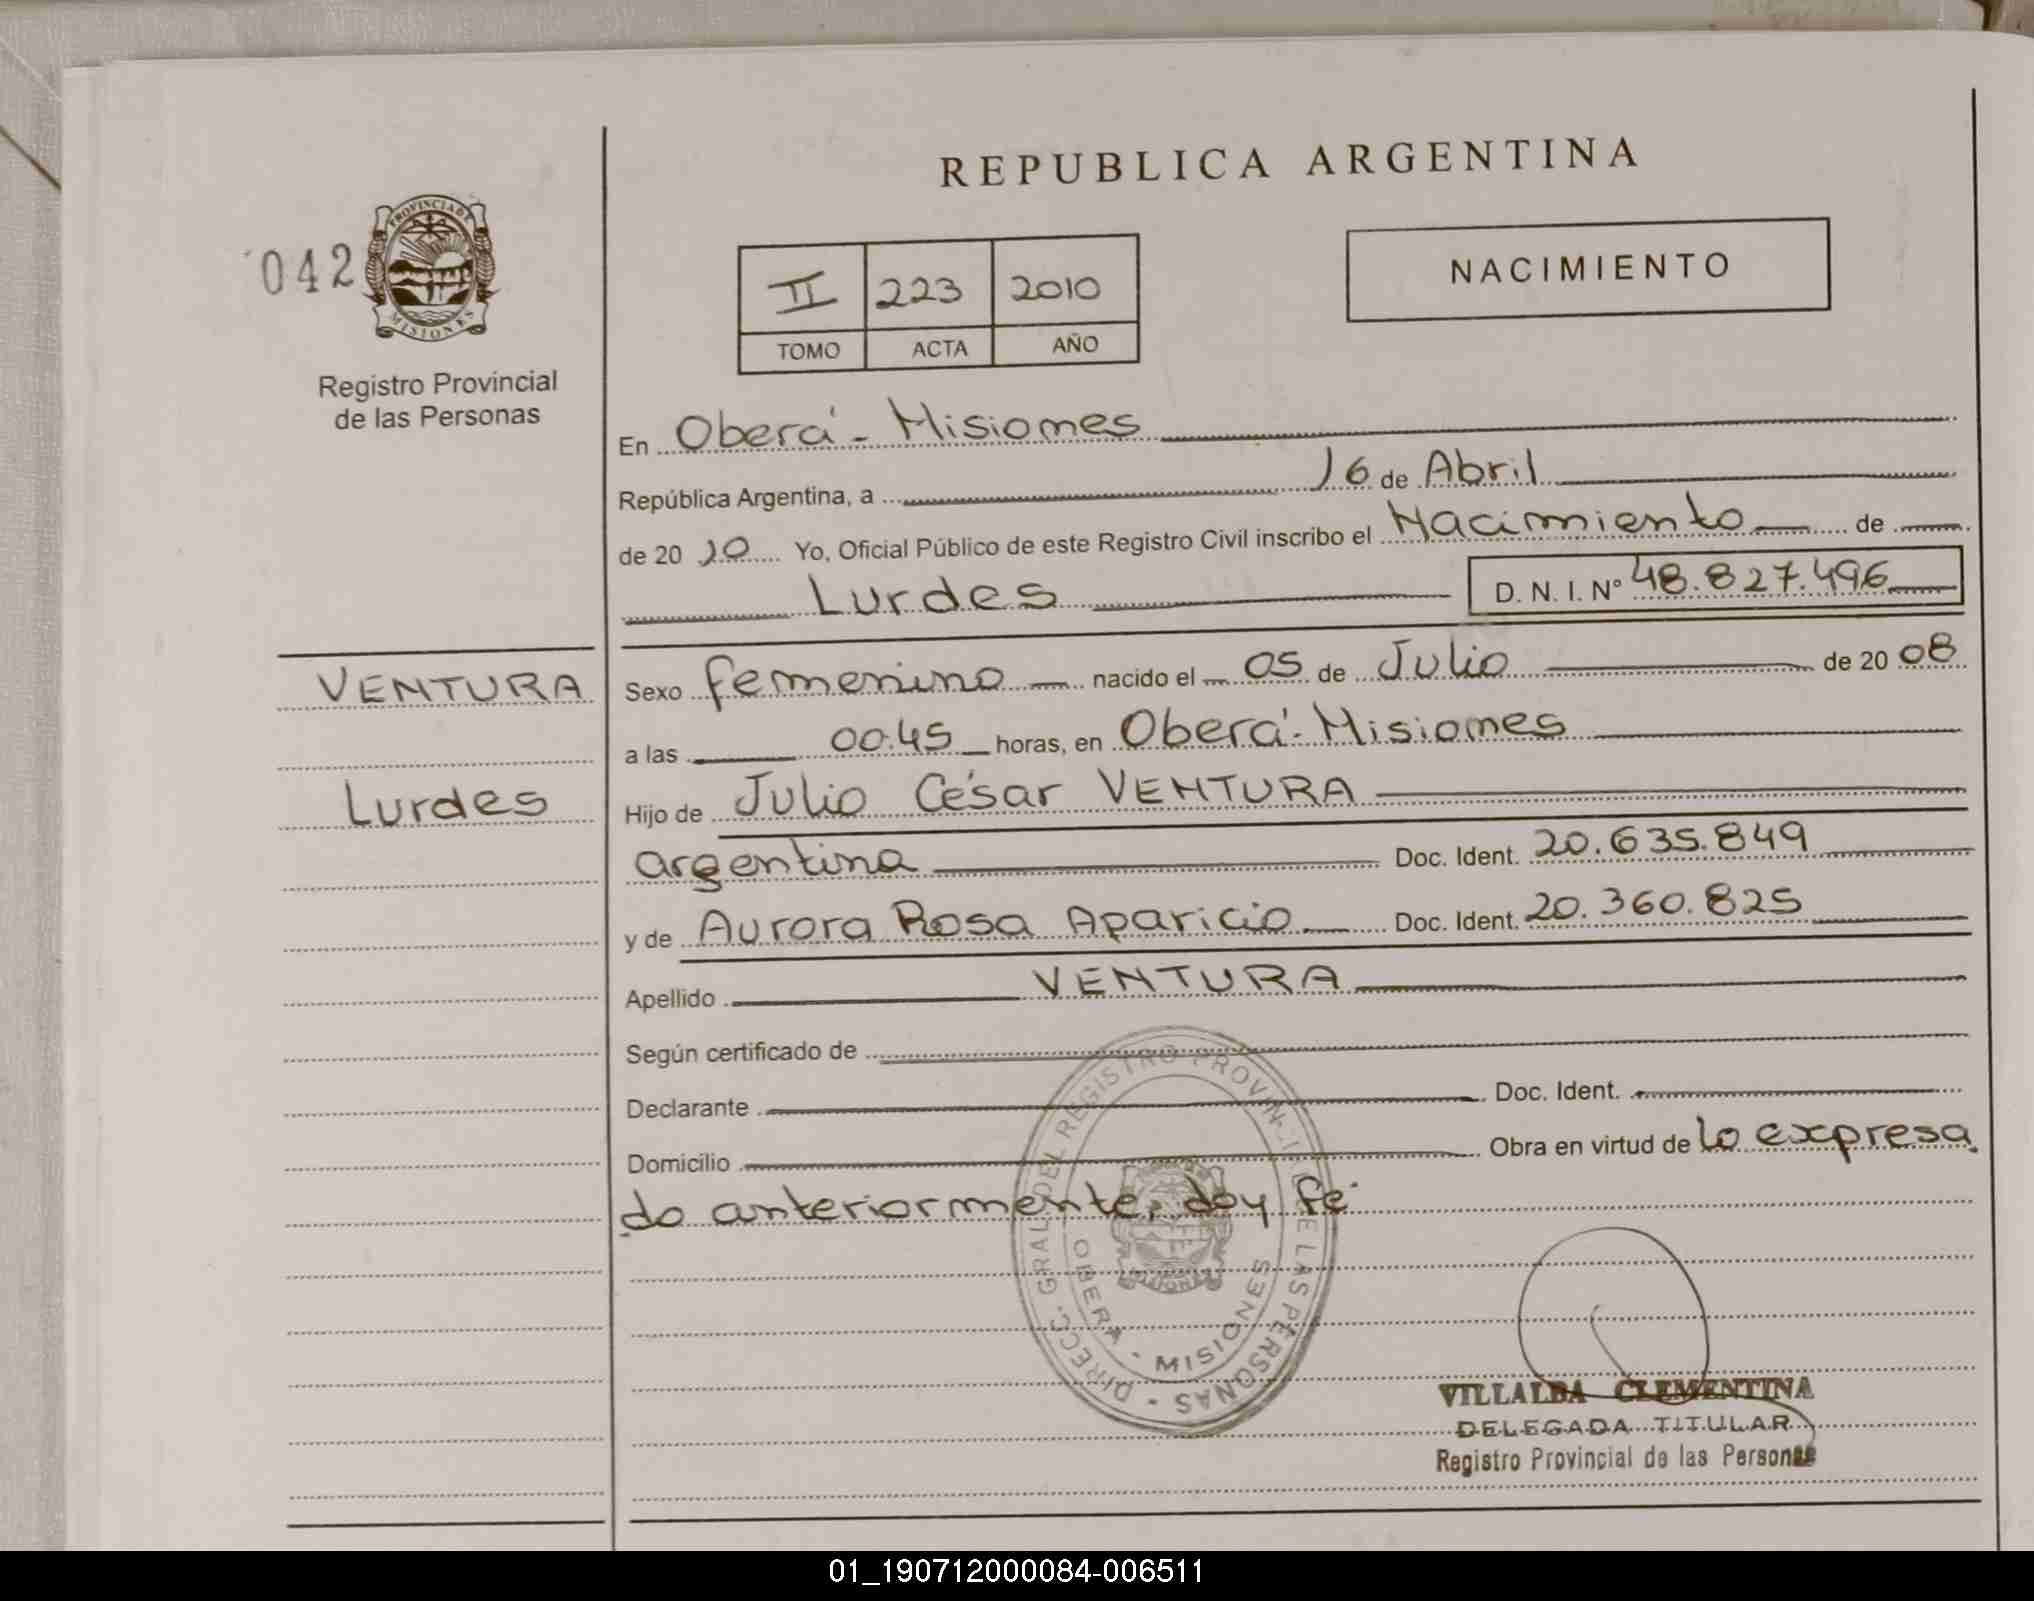 REPUBLICA ARGENTINA
042
PROVINCIA DE
MISIONES
Registro Provincial
de las Personas
II 223 2010
TOMO ACTA AÑO
NACIMIENTO
En Oberá - Misiones
República Argentina, a 16 de Abril
de 20 10 Yo, Oficial Público de este Registro Civil inscribo el Nacimiento de
Lurdes D. N. I. Nº 48.827.496
VENTURA
Lurdes
Sexo femenino nacido el 05 de Julio de 20 08
a las 00:45 horas, en Oberá - Misiones
Hijo de Julio César VENTURA
argentina Doc. Ident. 20.635.849
y de Aurora Rosa Aparicio Doc. Ident. 20.360.825
Apellido VENTURA
Según certificado de
Declarante Doc. Ident.
Domicilio Obra en virtud de lo expresa
do anteriormente, doy fé
DIRECC. GRAL DEL REGISTRO PROVINCIAL DE LAS PERSONAS
OBERA - MISIONES
VILLALBA CLEMENTINA
DELEGADA TITULAR
Registro Provincial de las Personas
01_190712000084-006511